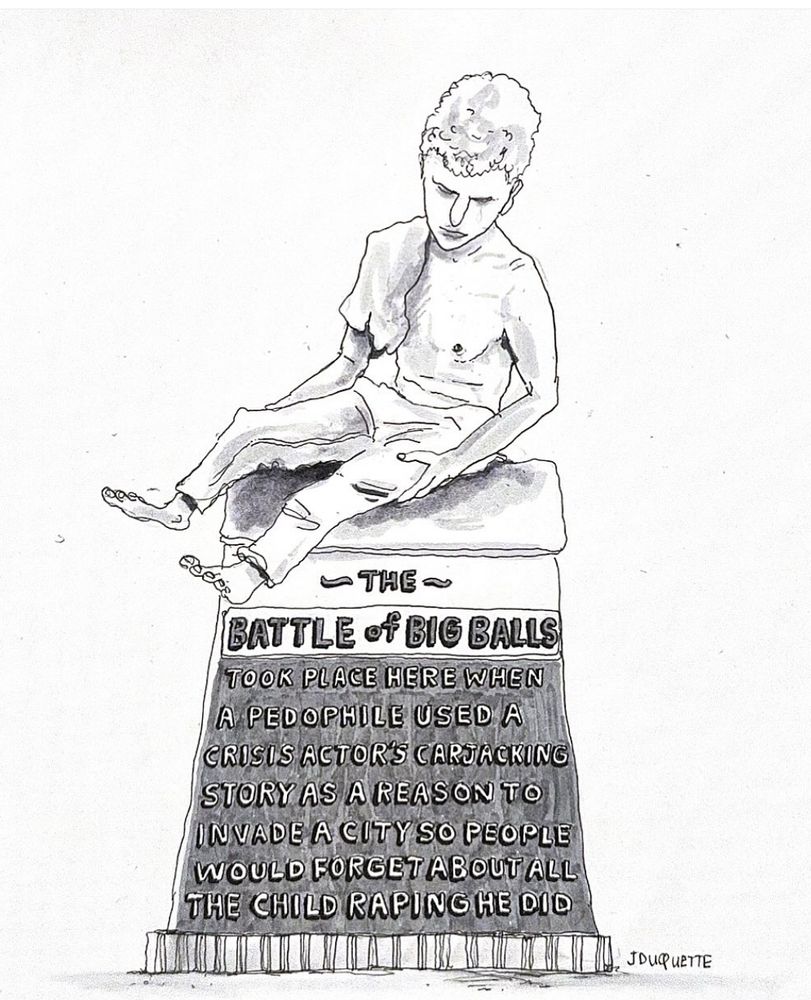 ~ THE ~
BATTLE of BIG BALLS
TOOK PLACE HERE WHEN
A PEDOPHILE USED A
CRISIS ACTOR'S CARJACKING
STORY AS A REASON TO
INVADE A CITY SO PEOPLE
WOULD FORGET ABOUT ALL
THE CHILD RAPING HE DID
JDUQUETTE